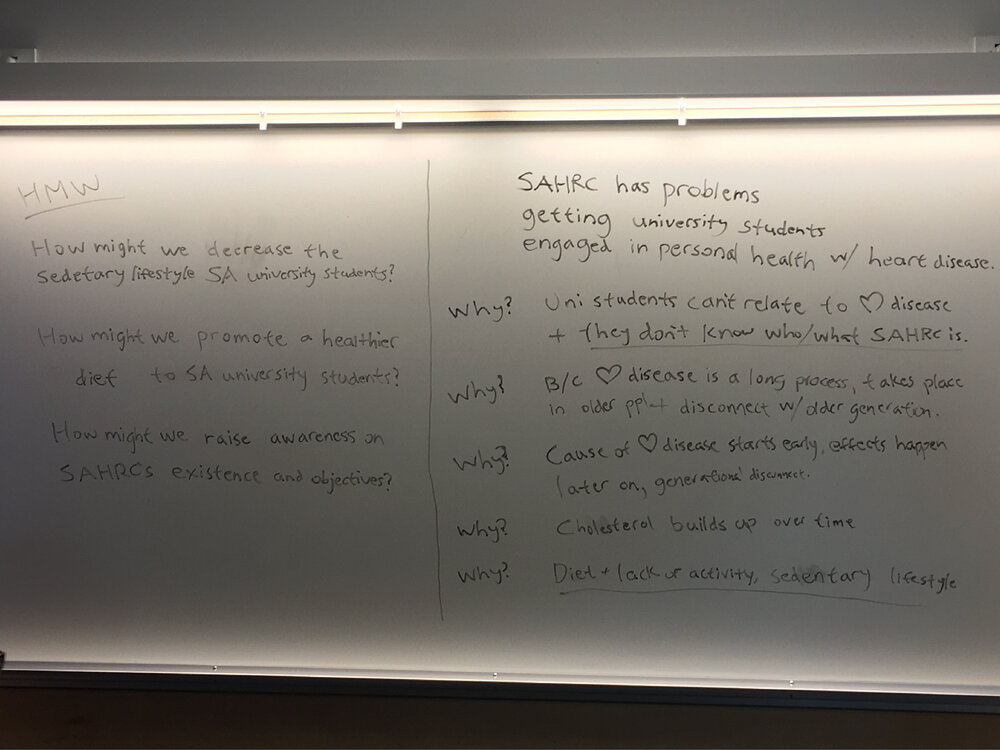 HMW
How might we decrease the
sedetary lifestyle SA university students?
How might we promote a healthier
diet to SA university students?
How might we raise awareness on
SAHRCs existence and objectives?
SAHRC has problems
getting university students
engaged in personal health w/ heart disease.
Why? Uni students can't relate to ♡ disease
+ they don't know who/what SAHRC is.
Why? B/c ♡ disease is a long process, takes place
in older ppl + disconnect w/ older generation.
Why? Cause of ♡ disease starts early, effects happen
later on, generational disconnect.
Why? Cholesterol builds up over time
Why? Diet + lack of activity, sedentary lifestyle